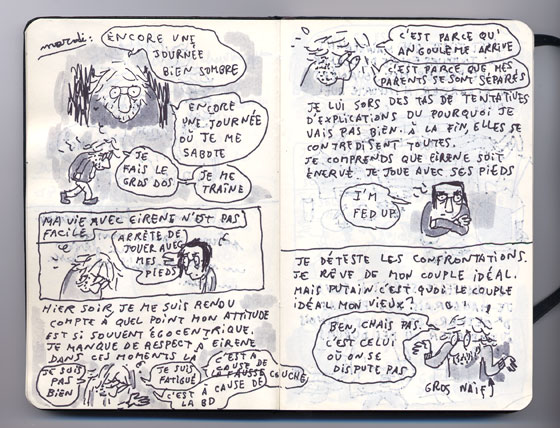 mardi:
ENCORE UNE
JOURNÉE
BIEN SOMBRE
ENCORE
UNE JOURNÉE
OÙ JE ME
SABOTE
JE
FAIS LE
GROS DOS
JE ME
TRAÎNE
MA VIE AVEC EIRENE N'EST PAS
FACILE
ARRÊTE DE
JOUER AVEC
MES
PIEDS
HIER SOIR, JE ME SUIS RENDU
COMPTE À QUEL POINT MON ATTITUDE
EST SI SOUVENT ÉGOCENTRIQUE.
JE MANQUE DE RESPECT À EIRENE
DANS CES MOMENTS LÀ
JE SUIS
PAS
BIEN
JE SUIS
FATIGUÉ
C'EST À
CAUSE DE
LA FAUSSE COUCHE
C'EST À CAUSE DE
LA BD
C'EST PARCE QU'
ANGOULÊME ARRIVE
C'EST PARCE QUE MES
PARENTS SE SONT SÉPARÉS
JE LUI SORS DES TAS DE TENTATIVES
D'EXPLICATIONS DU POURQUOI JE
VAIS PAS BIEN. À LA FIN, ELLES SE
CONTREDISENT TOUTES.
JE COMPRENDS QUE EIRENE SOIT
ÉNERVÉ. JE JOUE AVEC SES PIEDS
I'M
FED UP
JE DÉTESTE LES CONFRONTATIONS.
JE RÊVE DE MON COUPLE IDÉAL.
MAIS PUTAIN C'EST QUOI LE COUPLE
IDÉAL MON VIEUX?
BEN, CHAIS PAS.
C'EST CELUI
OÙ ON SE
DISPUTE PAS
GROS NAÏF